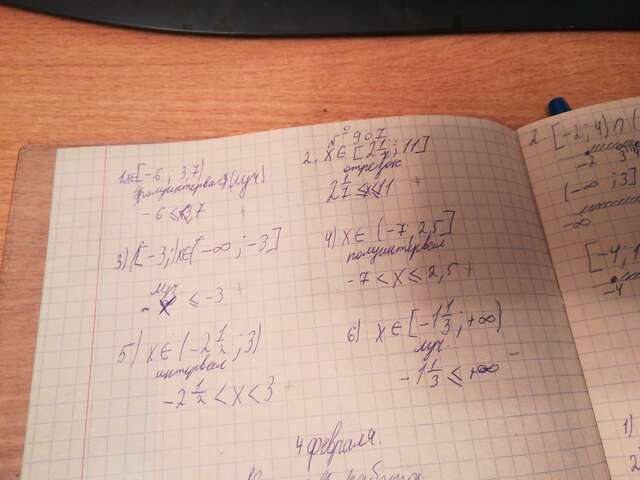 № 907
1. x∈[-6; 3,7)
полуинтервал (луч)
-6 ≤ x 3,7 +
2. x∈[2 1/7; 11]
отрезок
2 1/7 ≤ x ≤ 11 +
3) [-3; ) x∈(-∞; -3]
луч.
x ≤ -3 +
4) x∈(-7; 2,5]
полуинтервал
-7 < x ≤ 2,5 +
5) x∈(-2 1/2; 3)
интервал
-2 1/2 < x < 3 +
6) x∈[-1 1/3; +∞)
луч.
-1 1/3 ≤ +∞ -
4 февраля.
2. [-2; 4) ∩ (
-2 3
(-∞; 3]
-∞
[-4; 1
-4
1)
2)